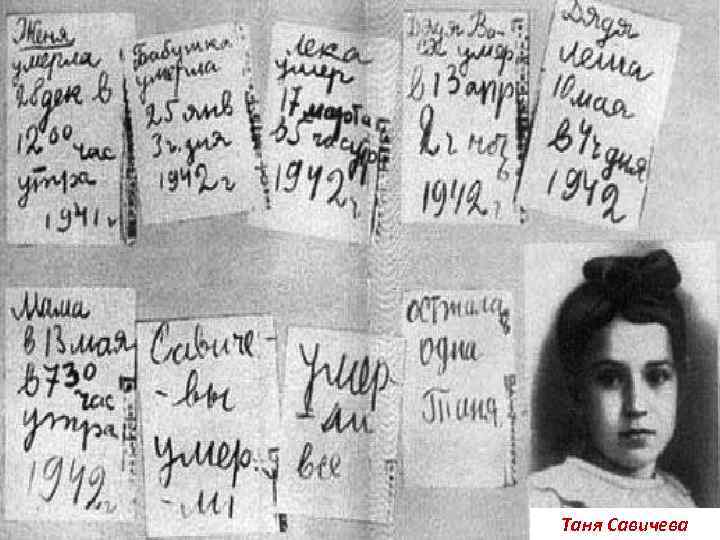 Женя
умерла
28 дек в
12 00 час
утра
1941 г
Бабушка
умерла
25 янв
3 ч. дня
1942 г
Лека
умер
17 марта
в 5 час утр
1942 г.
Дядя Ва-
ся умер
в 13 апр
2 ч ноч
1942 г
Дядя
Леша
10 мая
в 4 ч дня
1942
Мама
в 13 мая
в 730
час
утра
1942 г
Савиче-
-вы
умер.
-ли
умер-
-ли
все
осталась
одна
Таня
Таня Савичева